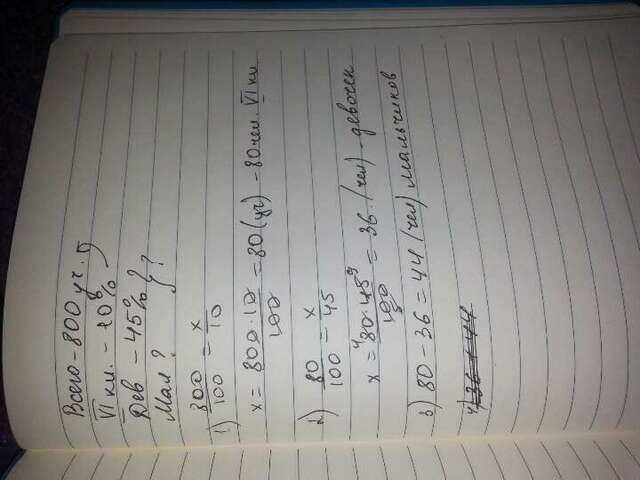 Всего - 800 уч.
VI кл. - 10%
Дев - 45% ?
Мал ?
1) 800/100 = x/10
x = 800·10/100 = 80 (уч) - 80 чел. VI кл
2) 80/100 = x/45
x = 80·45/100 = 36 (чел) - девочек
3) 80 - 36 = 44 (чел) мальчиков
4) 36 + 44